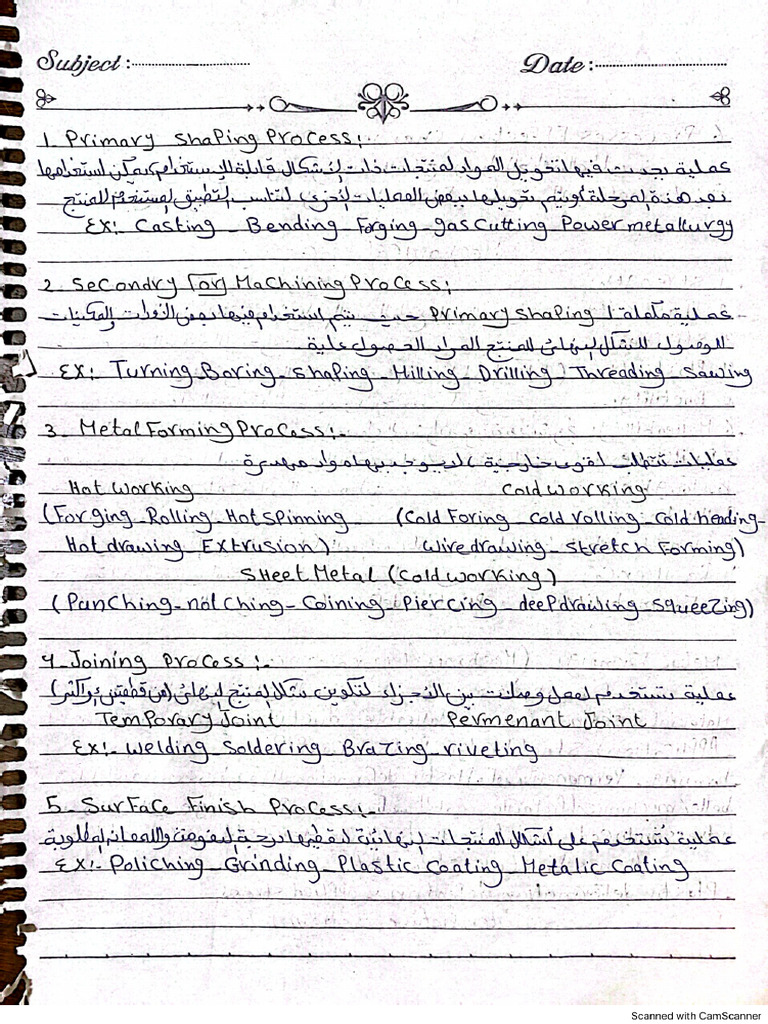 Subject : Date :
1. Primary Shaping Process :
عملية يحدث فيها تحويل المواد لمنتجات ذات أشكال قابلة للإستخدام يمكن استخدامها
بعد هذه المرحلة أو يتم تحويلها ببعض العمليات الأخرى لتناسب التطبيق المستخدم للمنتج
EX:- Casting - Bending - Forging - gas cutting - Power metallurgy
2. Secondry (or) Machining Process :
عملية مكملة لـ Primary Shaping حيث يتم استخدام فيها بعض الأدوات والمكينات
للوصول للشكل النهائى للمنتج المراد الحصول علية
EX:- Turning - Boring - Shaping - Milling - Drilling - Threading - Sawing
3. Metal Forming Process :-
عمليات تتطلب لقوى خارجية ، لا يوجد بها مواد مهدرة
Hot Working Cold working
(Forging - Rolling - Hot spinning (Cold Foring - cold rolling - cold heading -
Hot drawing - Extrusion) wire drawing - Stretch Forming)
Sheet Metal (Cold working)
(Punching - notching - Coining - Piercing - deep drawing - squeezing)
4. Joining Process :-
عملية تستخدم لعمل وصلات بين الأجزاء لتكوين شكل المنتج النهائى (من قطعتين أو أكثر)
Temporary Joint Permenant Joint
EX:- Welding - Soldering - Brazing - riveting
5. Surface Finish Process :-
عملية تستخدم على أشكال المنتجات النهائية ليعطيها درجة النعومة واللمعان المطلوبة
EX:- Poliching - Grinding - Plastic Coating - Metalic Coating
Scanned with CamScanner